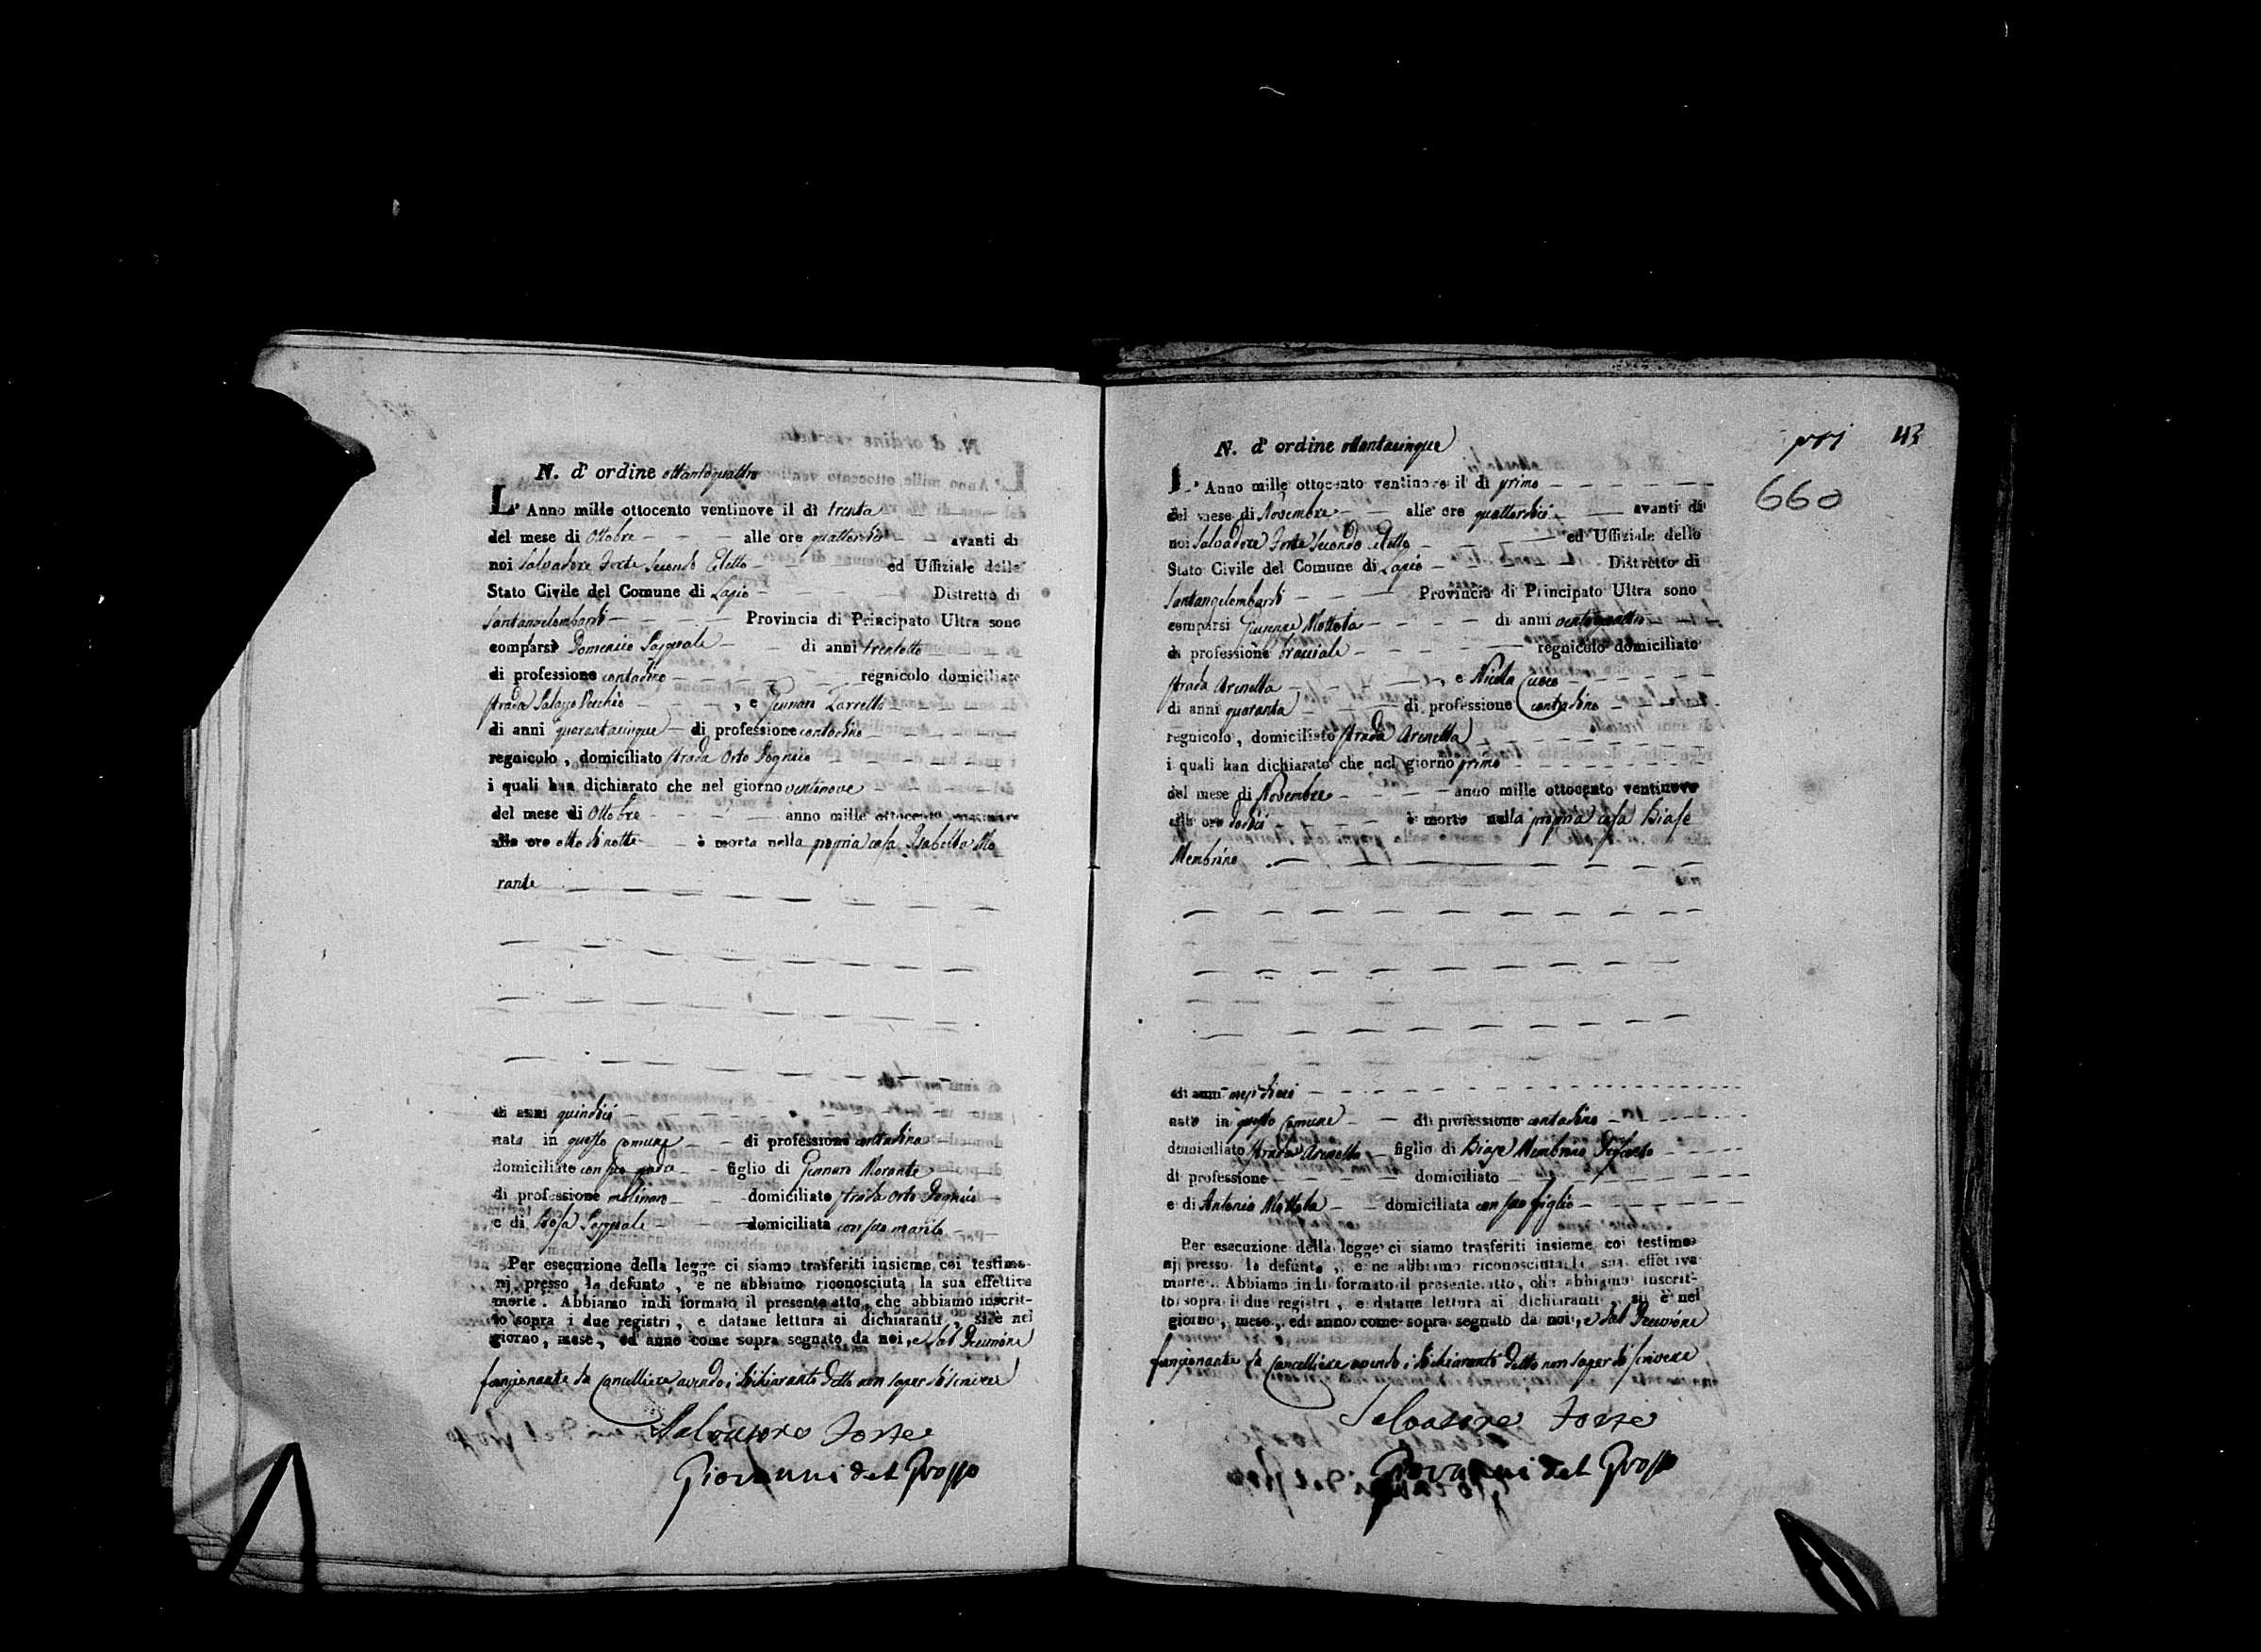 N. d' ordine ottantaquattro
L' Anno mille ottocento ventinove il dì trenta
del mese di Ottobre alle ore quattordici avanti di
noi Salvadore Forte Secondo Eletto ed Uffiziale dello
Stato Civile del Comune di Lapio Distretto di
Santangelombardi Provincia di Principato Ultra sono
comparsi Domenico Pasquale di anni trentotto
di professione contadino regnicolo domiciliato
strada Palazzo Vecchio , e Gennaro Zarrella
di anni quarantacinque di professione contadino
regnicolo , domiciliato strada Orto
i quali han dichiarato che nel giorno ventinove
del mese di Ottobre anno mille ottocento ventinove
alle ore otto di notte è morta nella propria casa Isabella Mo
rante
di anni quindici
nata in questo Comune di professione contadina
domiciliato con suo padre figlio di Gennaro Morante
di professione molinaro domiciliato strada Orto
e di Rosa Pasquale domiciliata con suo marito
Per esecuzione della legge ci siamo trasferiti insieme coi testimo-
nj presso la defunta , e ne abbiamo riconosciuta la sua effettiva
morte . Abbiamo indi formato il presente atto , che abbiamo inscrit-
to sopra i due registri , e datane lettura ai dichiaranti , si è nel
giorno , mese , ed anno come sopra segnato da noi , e dal Decurione
funzionante da Cancelliere avendo i dichiaranti detto non saper di scrivere
Salvatore Forte
Giovanni del Grosso
N. d' ordine ottantacinque
43
660
L' Anno mille ottocento ventinove il dì primo
del mese di Novembre alle ore quattordici avanti di
noi Salvadore Forte Secondo Eletto ed Uffiziale dello
Stato Civile del Comune di Lapio Distretto di
Santangelombardi Provincia di Principato Ultra sono
comparsi Giuseppe Mottola di anni ventiquattro
di professione bracciale regnicolo domiciliato
strada Arenella , e Nicola Cuoco
di anni quaranta di professione contadino
regnicolo , domiciliato strada Arenella
i quali han dichiarato che nel giorno primo
del mese di Novembre anno mille ottocento ventinove
alle ore dodici è morto nella propria casa Biase
Membrino
di anni mesi dieci
nato in questo Comune di professione contadino
domiciliato strada Arenella figlio di Biase Membrino
di professione domiciliato
e di Antonia Mottola domiciliata con suo figlio
Per esecuzione della legge ci siamo trasferiti insieme coi testimo-
nj presso lo defunto , e ne abbiamo riconosciuta la sua effettiva
morte . Abbiamo indi formato il presente atto , che abbiamo inscrit-
to sopra i due registri , e datane lettura ai dichiaranti , si è nel
giorno , mese , ed anno come sopra segnato da noi , e dal Decurione
funzionante da Cancelliere avendo i dichiaranti detto non saper di scrivere
Salvatore Forte
Giovanni del Grosso